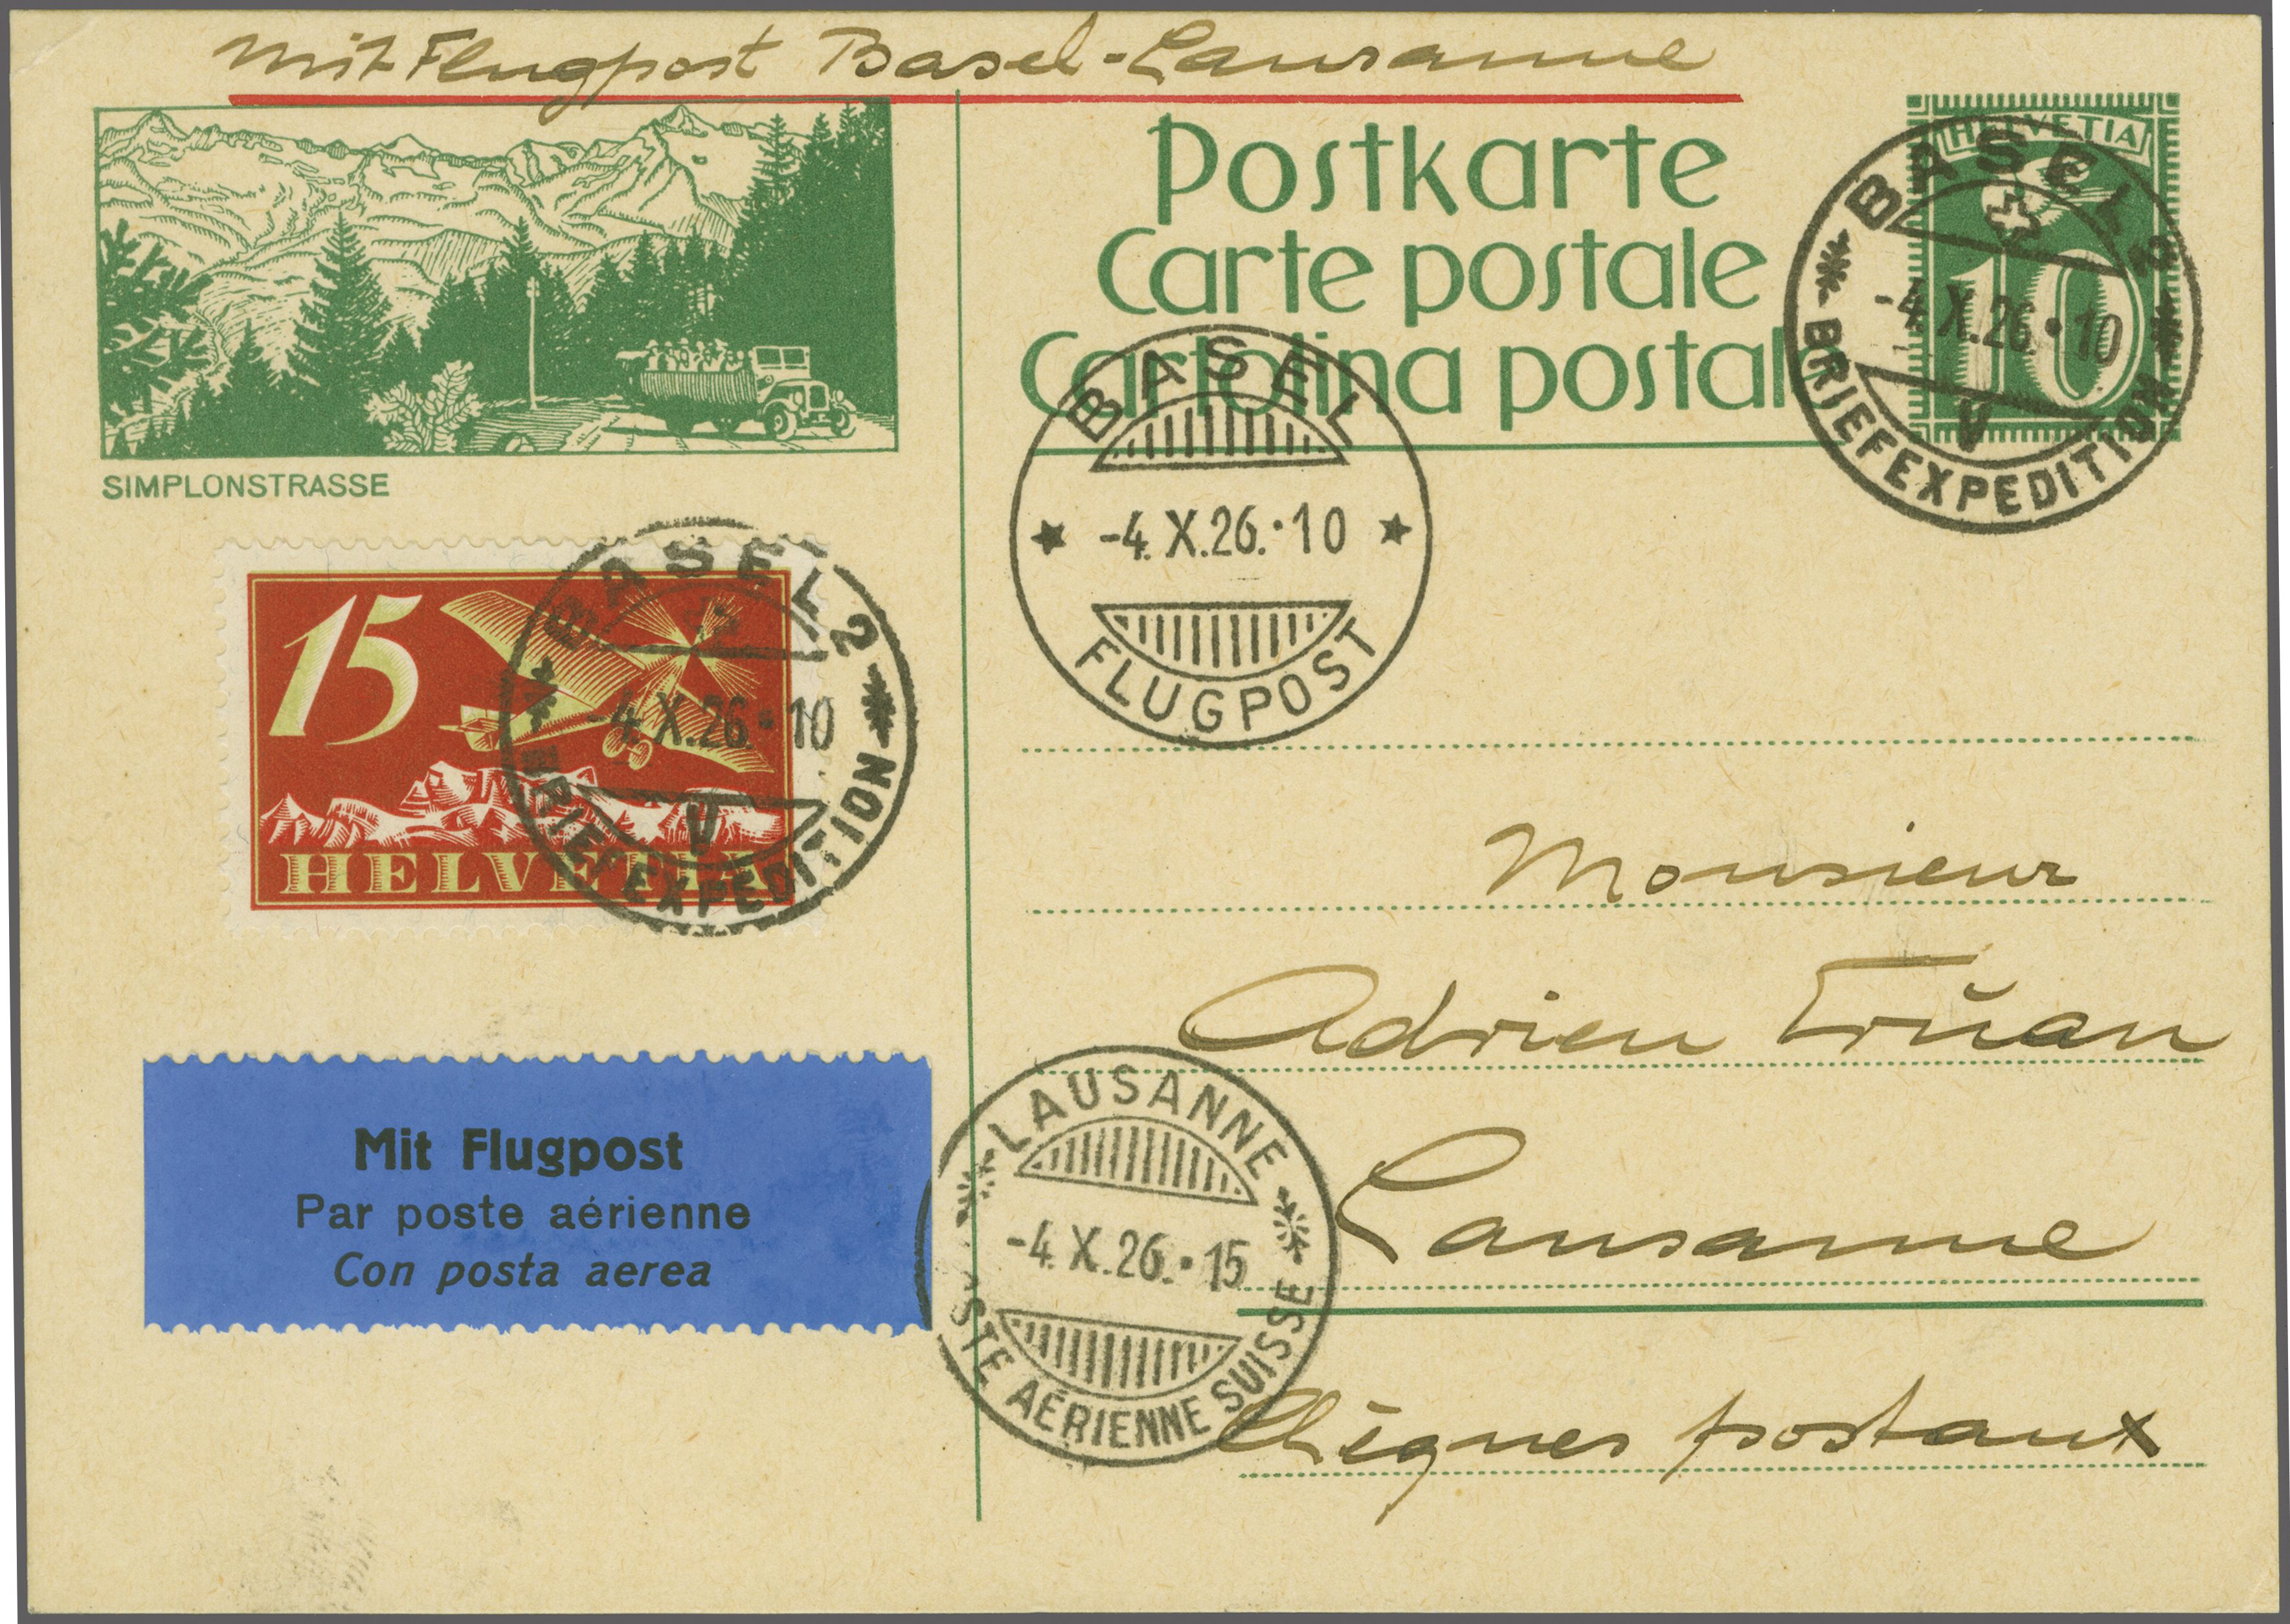 Mit Flugpost Basel-Lausanne
Postkarte
Carte postale
Cartolina postale
HELVETIA
10
BASEL 2
-4.X.26.•10
V
BRIEFEXPEDITION
SIMPLONSTRASSE
BASEL
-4.X.26.•10
FLUGPOST
15
HELVETIA
BASEL 2
-4.X.26.•10
V
BRIEFEXPEDITION
Monsieur
Adrien Trŭan
Lausanne
Chèques postaux
Mit Flugpost
Par poste aérienne
Con posta aerea
LAUSANNE
-4.X.26.•15
STE AÉRIENNE SUISSE